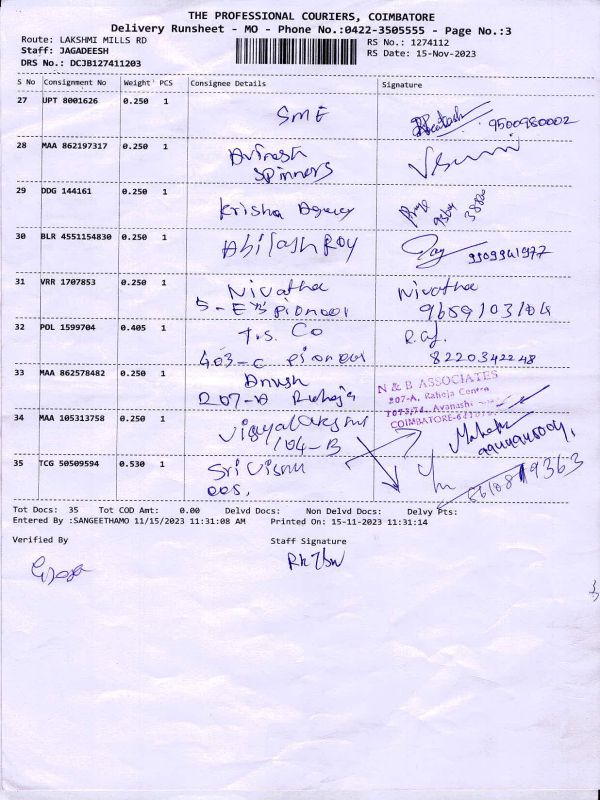 THE PROFESSIONAL COURIERS, COIMBATORE
Delivery Runsheet - MO - Phone No.:0422-3505555 - Page No.:3
Route: LAKSHMI MILLS RD
RS No.: 1274112
Staff: JAGADEESH
RS Date: 15-Nov-2023
DRS No.: DCJB127411203
S No Consignment No Weight PCS Consignee Details Signature
27 UPT 8001626 0.250 1 SME 9500980002
28 MAA 862197317 0.250 1 Avinash
Spinners
29 DDG 144161 0.250 1 Krisha Agency
30 BLR 4551154830 0.250 1 Abilash Roy
31 VRR 1707853 0.250 1 Nivatha Nivatha
5-E Pioneer 9659103104
32 POL 1599704 0.405 1 T.S. Co Raj
403-C Pioneer 8220342248
33 MAA 862578482 0.250 1 207-A Raheja
N & B ASSOCIATES
207-A, Raheja Centre
1073/74, Avanashi
COIMBATORE
34 MAA 105313758 0.250 1 Vijayalakshmi
104-B
35 TCG 50509594 0.530 1 Sri Vishnu
Tot Docs: 35 Tot COD Amt: 0.00 Delvd Docs: Non Delvd Docs: Delvy Pts:
Entered By :SANGEETHAMO 11/15/2023 11:31:08 AM Printed On: 15-11-2023 11:31:14
Verified By Staff Signature